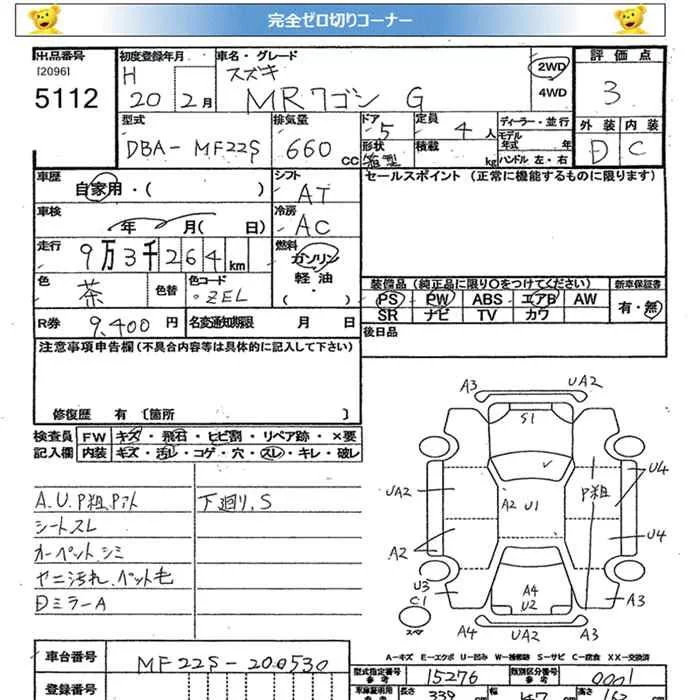 完全ゼロ切りコーナー
出品番号 初度登録年月 車名・グレード 評価点
[2096] H スズキ 2WD 3
5112 20 2月 MRワゴン G 4WD 外装 内装
型式 排気量 ドア 5 定員 4人 ディーラー・並行 D C
DBA-MF22S 660cc 形状 箱型 積載 kg モデル年式 年
ハンドル 左・右
車歴 自家用・( ) シフト AT セールスポイント (正常に機能するものに限ります)
車検 年 月( 日) 冷房 AC
走行 9万3千264km 燃料 ガソリン
軽油
・( )
色 茶 色替 色コード ・ZEL 装備品(純正品に限り○をつけてください) 新車保証書
PS PW ABS エアB AW 有・無
R券 9,400円 名変通知期限 月 日 SR ナビ TV カワ
注意事項申告欄(不具合内容等は具体的に記入して下さい) 後日品
修復歴 有〔箇所 〕
検査員 FW キズ・飛石・ヒビ割・リペア跡・×要
記入欄 内装 キズ・汚レ・コゲ・穴・スレ・キレ・破レ
A.U.P粗.Pァト 下廻り.S
シートスレ
カーペットシミ
ヤニ汚れ.ペット毛
Dミラー A
A3 UA2
S1
UA2 A2 U1 P粗 U4
A2 U4
U3 A4 A3
C1 U2
スペア A4 UA2 A3
A-キズ E-エクボ U-凹み W-補修跡 S-サビ C-腐食 XX-交換済
車台番号 MF22S-200530 型式指定番号 参考 15276 類別区分番号 参考 0001
登録番号 車庫証明用 参考 長さ 339 cm 幅 147 cm 高さ 162 cm